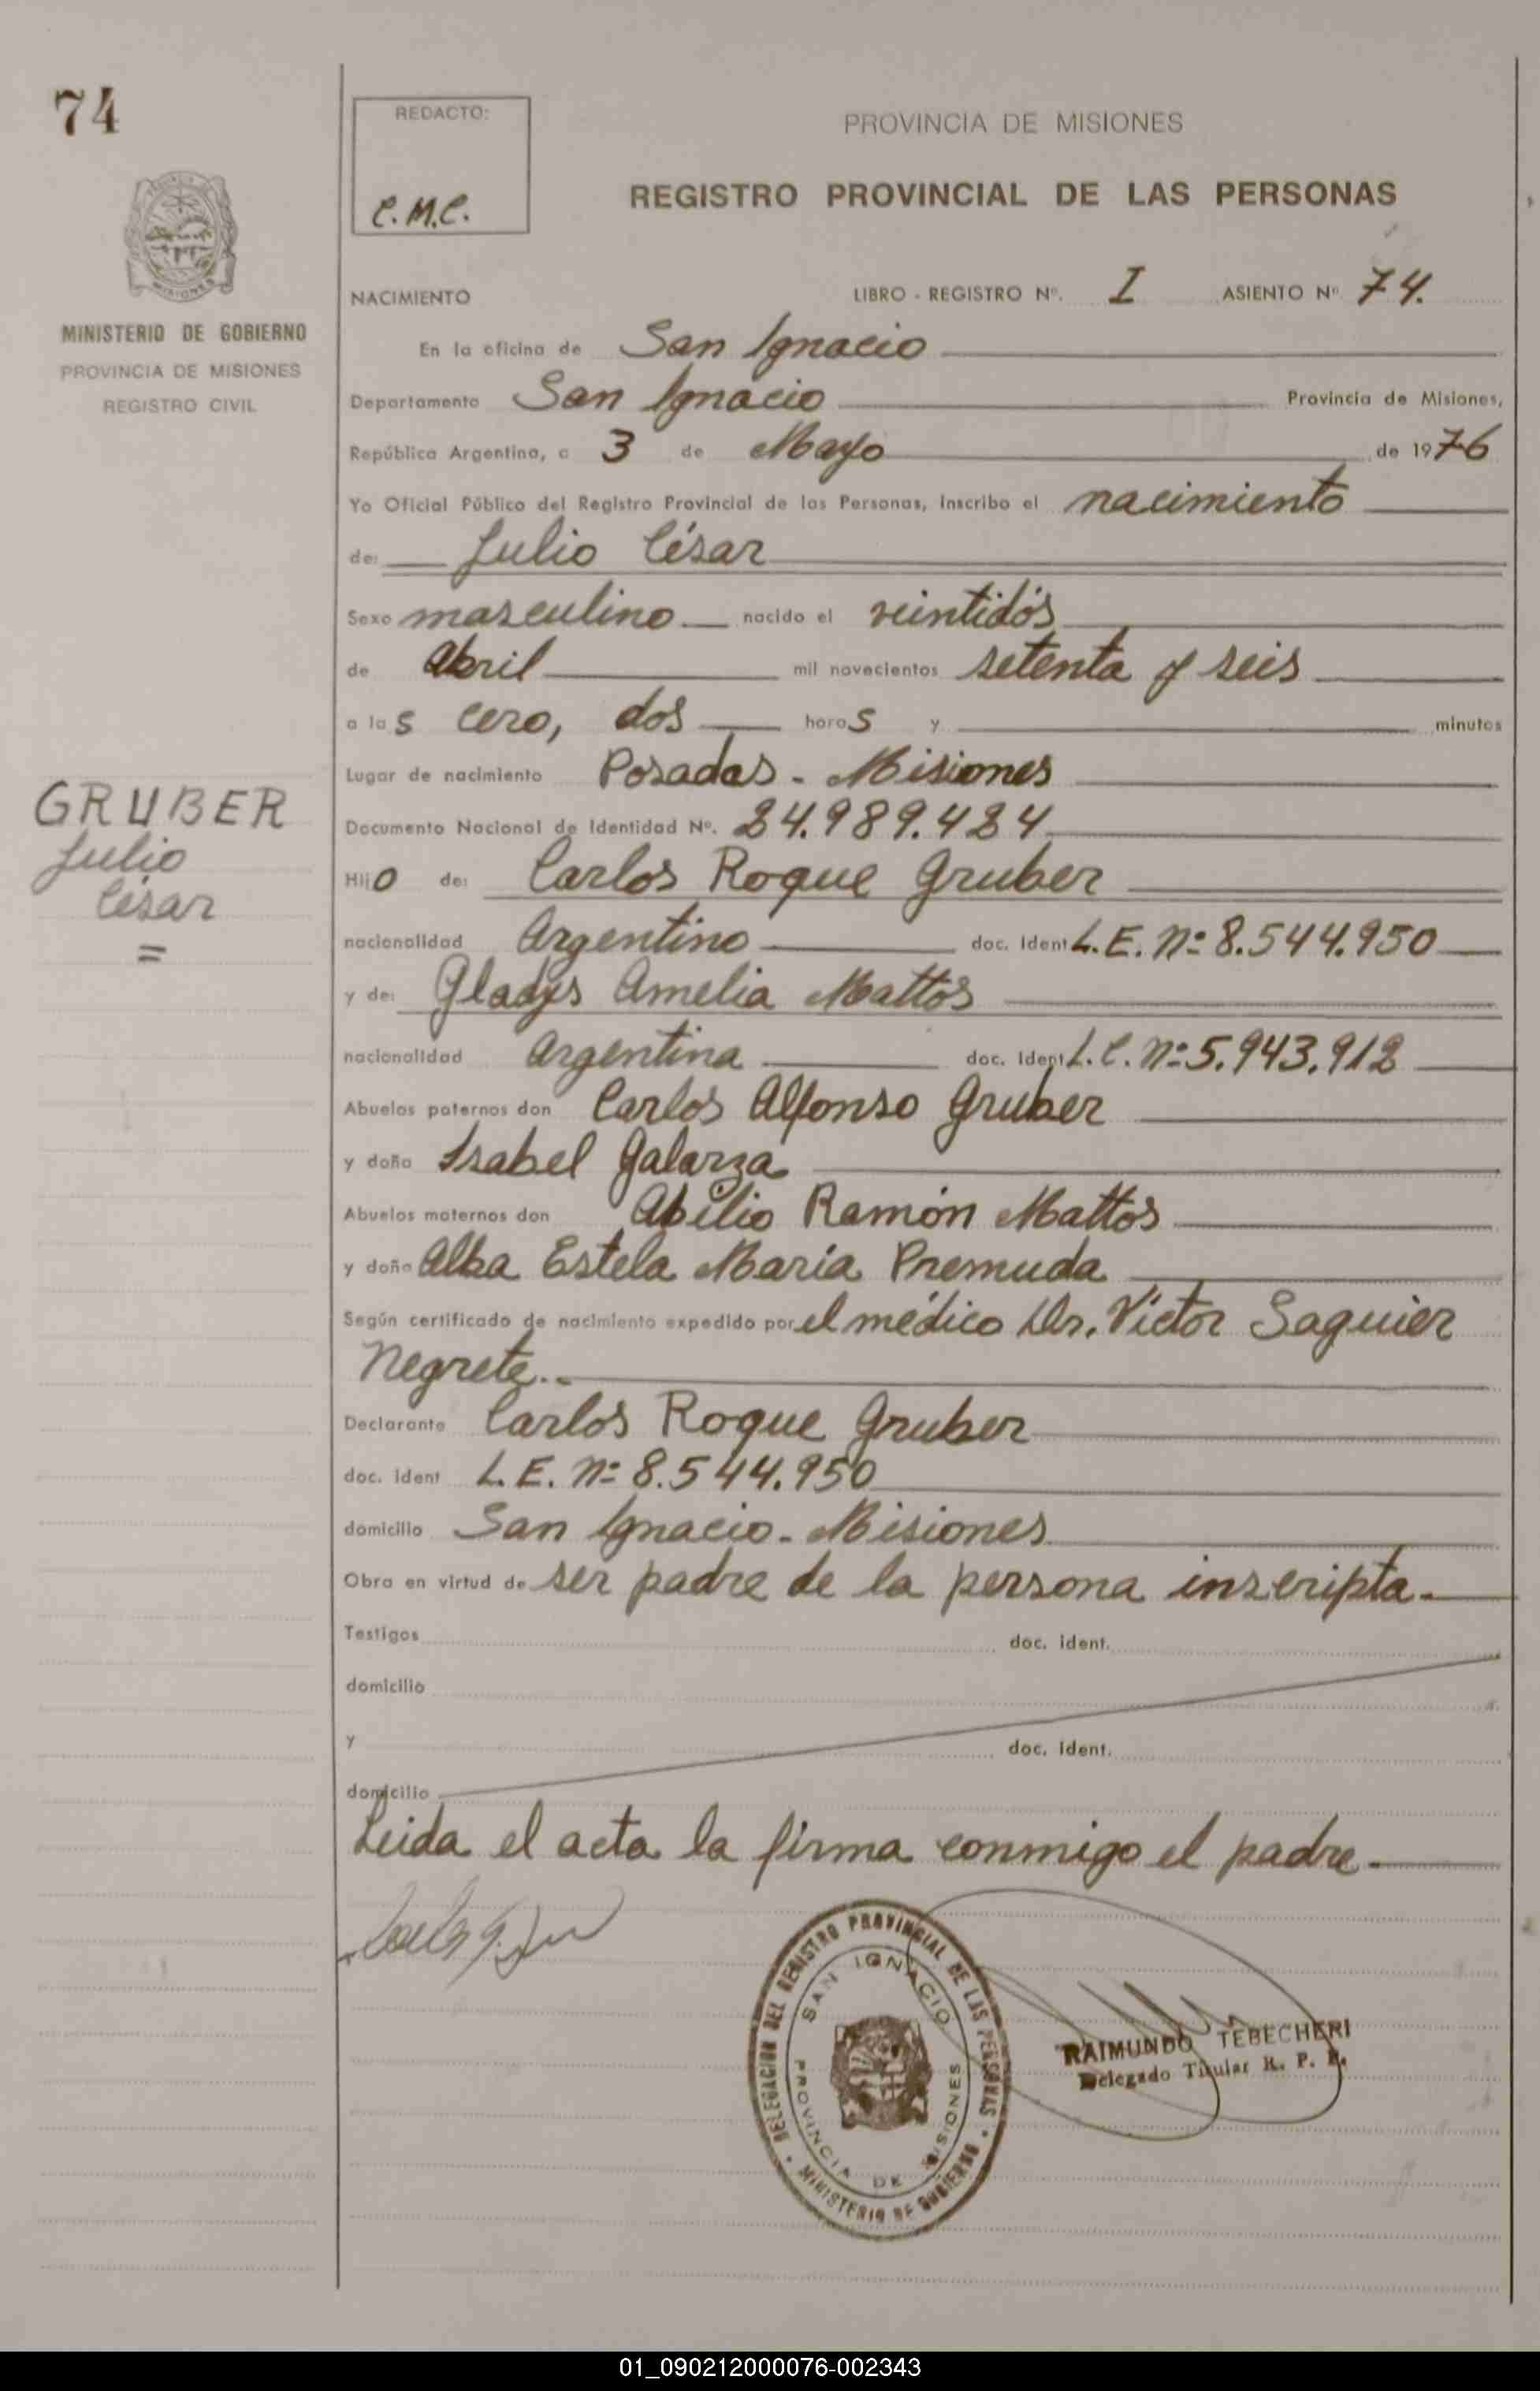 74
REDACTO:
C.M.C.
PROVINCIA DE MISIONES
REGISTRO PROVINCIAL DE LAS PERSONAS
MISIONES
MINISTERIO DE GOBIERNO
PROVINCIA DE MISIONES
REGISTRO CIVIL
NACIMIENTO LIBRO - REGISTRO Nº. I ASIENTO Nº 74.
En la oficina de San Ignacio
Departamento San Ignacio Provincia de Misiones,
República Argentina, a 3 de Mayo de 1976
Yo Oficial Público del Registro Provincial de las Personas, Inscribo el nacimiento
de: Julio César
Sexo masculino nacido el veintidós
de Abril mil novecientos setenta y seis
a las cero, dos horas y minutos
Lugar de nacimiento Posadas - Misiones
GRUBER
Julio
César
=
Documento Nacional de Identidad Nº. 24.989.424
Hijo de: Carlos Roque Gruber
nacionalidad Argentino doc. Ident L.E. Nº 8.544.950
y de: Gladys Amelia Mattos
nacionalidad Argentina doc. Ident L.C. Nº 5.943.912
Abuelos paternos don Carlos Alfonso Gruber
y doña Isabel Galarza
Abuelos maternos don Abilio Ramón Mattos
y doña Alba Estela María Premuda
Según certificado de nacimiento expedido por el médico Dr. Víctor Saguier
Negrete.-
Declarante Carlos Roque Gruber
doc. ident L.E. Nº 8.544.950
domicilio San Ignacio - Misiones
Obra en virtud de ser padre de la persona inscripta.
Testigos doc. ident.
domicilio
y doc. ident.
domicilio
Leida el acta la firma conmigo el padre.
DELEGACION DEL REGISTRO PROVINCIAL DE LAS PERSONAS
SAN IGNACIO
PROVINCIA DE MISIONES
MINISTERIO DE GOBIERNO
RAIMUNDO TEBECHERI
Delegado Titular R. P. P.
01_090212000076-002343